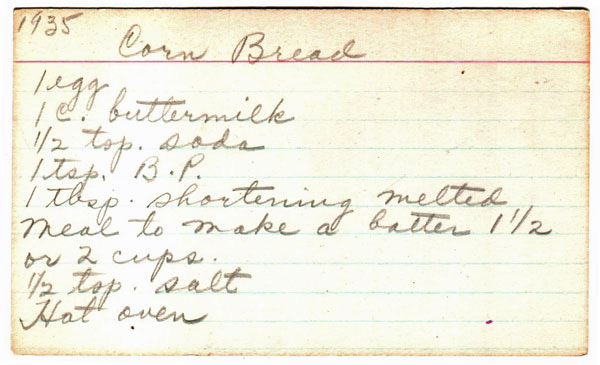 1935
Corn Bread
1 egg
1 C. buttermilk
1/2 tsp. soda
1 tsp. B.P.
1 tbsp. shortening melted
Meal to make a batter 1 1/2
or 2 cups.
1/2 tsp. salt
Hot oven